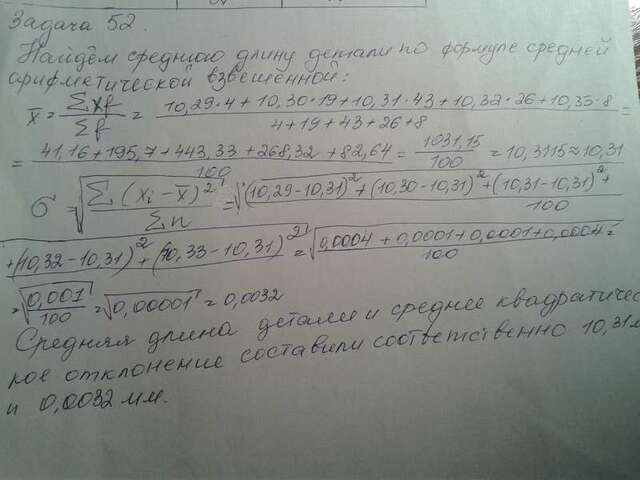 Задача 52.
Найдём среднюю длину детали по формуле средней
арифметической взвешенной:
x̄ = ∑xf / ∑f = (10,29·4 + 10,30·19 + 10,31·43 + 10,32·26 + 10,33·8) / (4+19+43+26+8) =
= (41,16 + 195,7 + 443,33 + 268,32 + 82,64) / 100 = 1031,15 / 100 = 10,3115 ≈ 10,31
σ = √(∑(xᵢ - x̄)² / ∑n) = √((10,29-10,31)² + (10,30-10,31)² + (10,31-10,31)² +
+ (10,32-10,31)² + (10,33-10,31)² / 100) = √((0,0004 + 0,0001 + 0,0001 + 0,0004) / 100) =
= √(0,001 / 100) = √0,00001 = 0,0032
Средняя длина детали и среднее квадратичес
кое отклонение составили соответственно 10,31м
и 0,0032 мм.